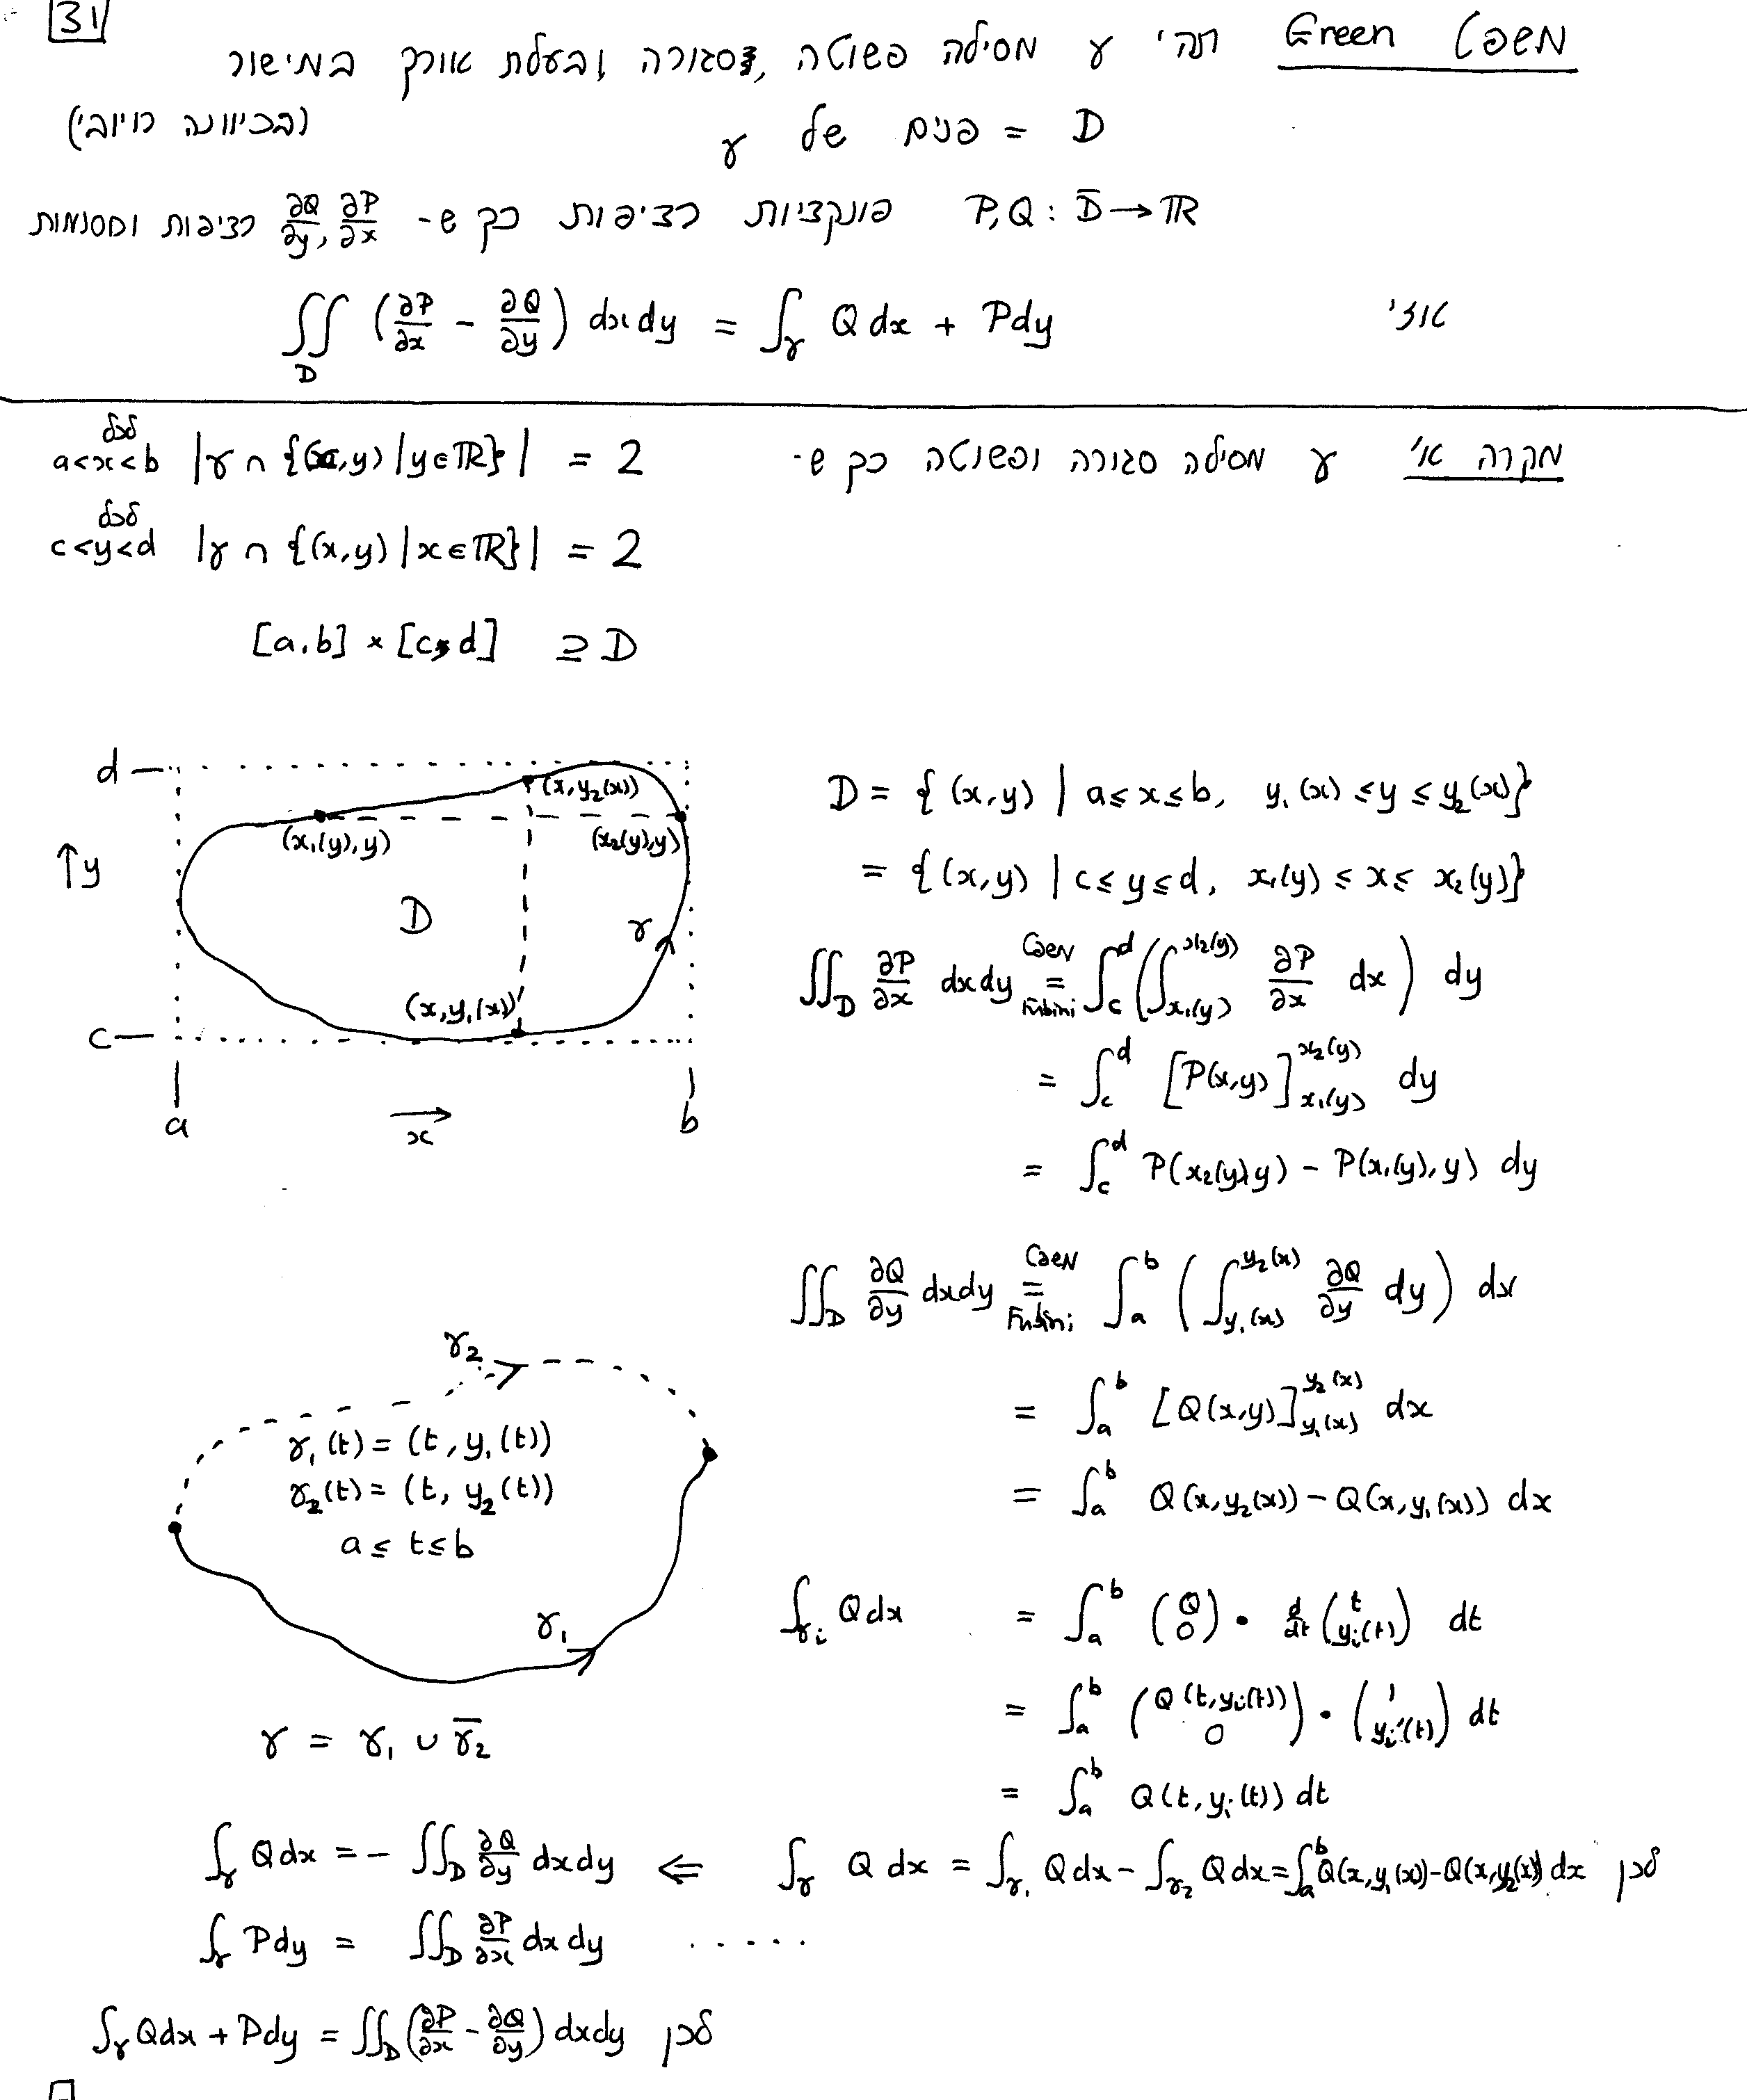 31
משפט Green תהי γ מסילה פשוטה, סגורה ובעלת אורך במישור
D = פנים של γ (בכיוונה חיובי)
P,Q: D̄→ℝ פונקציות רציפות כך ש- ∂Q/∂y, ∂P/∂x רציפות וחסומות
אזי ∬_D (∂P/∂x - ∂Q/∂y) dxdy = ∫_γ Qdx + Pdy
מקרה א' γ מסילה סגורה ופשוטה כך ש-
|γ ∩ {(x,y) | y∈ℝ}| = 2 לכל a<x<b
|γ ∩ {(x,y) | x∈ℝ}| = 2 לכל c<y<d
[a,b] × [c,d] ⊇ D
d
(x,y₂(x))
(x₁(y),y) (x₂(y),y)
↑y
D
γ
(x,y₁(x))
c
a → x b
D = {(x,y) | a≤x≤b, y₁(x) ≤ y ≤ y₂(x)}
= {(x,y) | c≤y≤d, x₁(y) ≤ x ≤ x₂(y)}
∬_D ∂P/∂x dxdy = משפט Fubini ∫_c^d (∫_{x₁(y)}^{x₂(y)} ∂P/∂x dx) dy
= ∫_c^d [P(x,y)]_{x₁(y)}^{x₂(y)} dy
= ∫_c^d P(x₂(y),y) - P(x₁(y),y) dy
∬_D ∂Q/∂y dxdy = משפט Fubini ∫_a^b (∫_{y₁(x)}^{y₂(x)} ∂Q/∂y dy) dx
= ∫_a^b [Q(x,y)]_{y₁(x)}^{y₂(x)} dx
= ∫_a^b Q(x,y₂(x)) - Q(x,y₁(x)) dx
γ₂
γ₁(t) = (t, y₁(t))
γ₂(t) = (t, y₂(t))
a ≤ t ≤ b
γ₁
γ = γ₁ ∪ γ̄₂
∫_{γᵢ} Qdx = ∫_a^b (Q 0) • d/dt (t yᵢ(t)) dt
= ∫_a^b (Q(t,yᵢ(t)) 0) • (1 yᵢ'(t)) dt
= ∫_a^b Q(t,yᵢ(t)) dt
לכן ∫_γ Q dx = ∫_{γ₁} Qdx - ∫_{γ₂} Qdx = ∫_a^b Q(x,y₁(x)) - Q(x,y₂(x)) dx ⇐ ∫_γ Qdx = - ∬_D ∂Q/∂y dxdy
..... ∫_γ Pdy = ∬_D ∂P/∂x dxdy
לכן ∫_γ Qdx + Pdy = ∬_D (∂P/∂x - ∂Q/∂y) dxdy